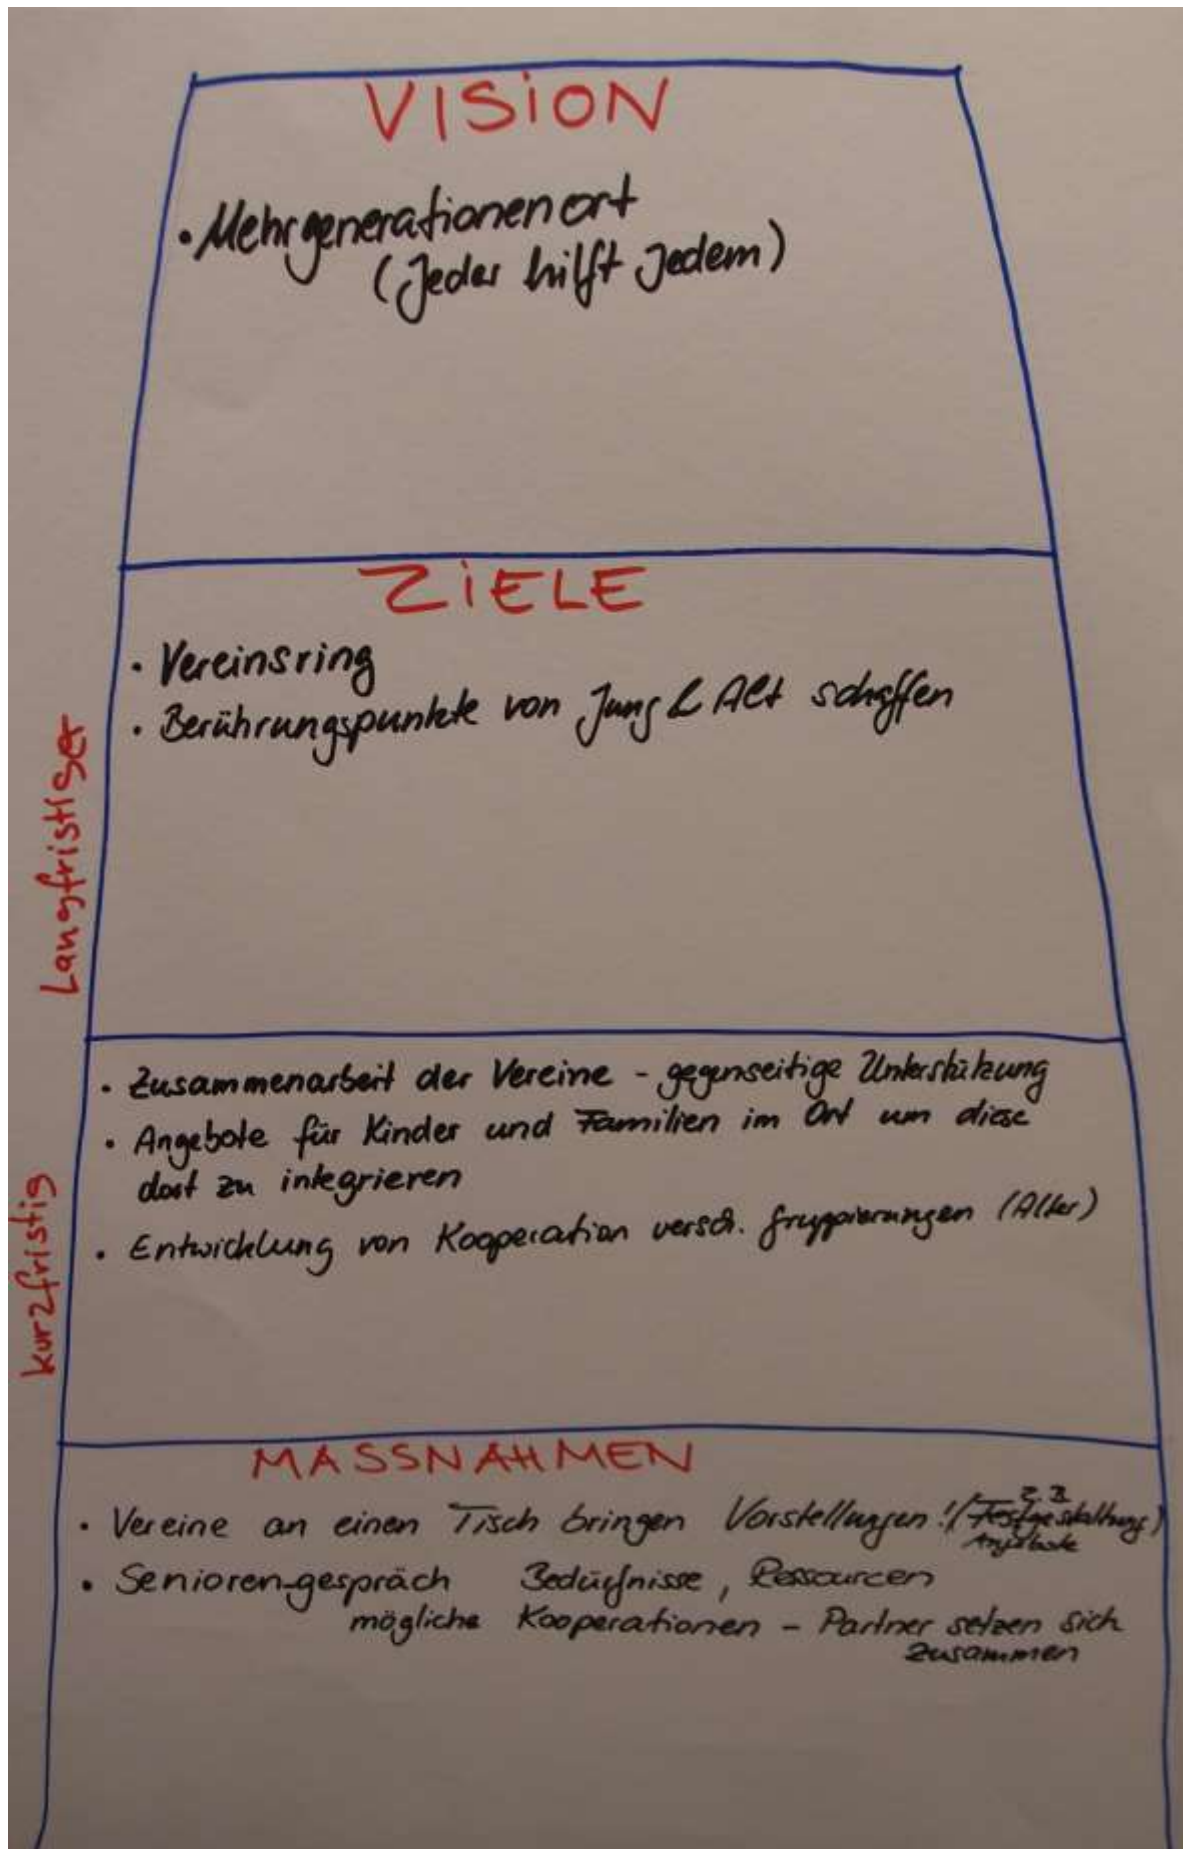 VISION
• Mehrgenerationenort
(Jeder hilft Jedem)
ZIELE
• Vereinsring
• Berührungspunkte von Jung & Alt schaffen
Langfristiger
• Zusammenarbeit der Vereine - gegenseitige Unterstützung
• Angebote für Kinder und Familien im Ort um diese
dort zu integrieren
• Entwicklung von Kooperation versch. Gruppierungen (Alter)
kurzfristig
MASSNAHMEN
z.B.
• Vereine an einen Tisch bringen Vorstellungen! (Festgestaltung)
• Senioren-gespräch Bedürfnisse, Ressourcen
mögliche Kooperationen - Partner setzen sich
zusammen